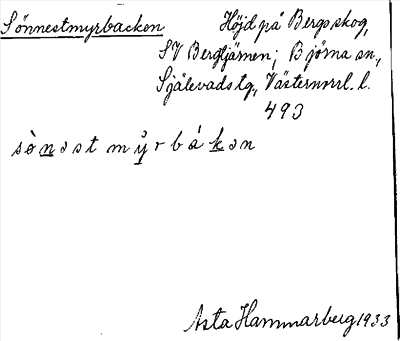 Sönnestmyrbacken
Höjd på Bergsskog,
SV Bergtjärnen; Björna sn,
Själevads tg, Västernorrl. l.
493
sònəst mỳr bákən
Asta Hammarberg 1933